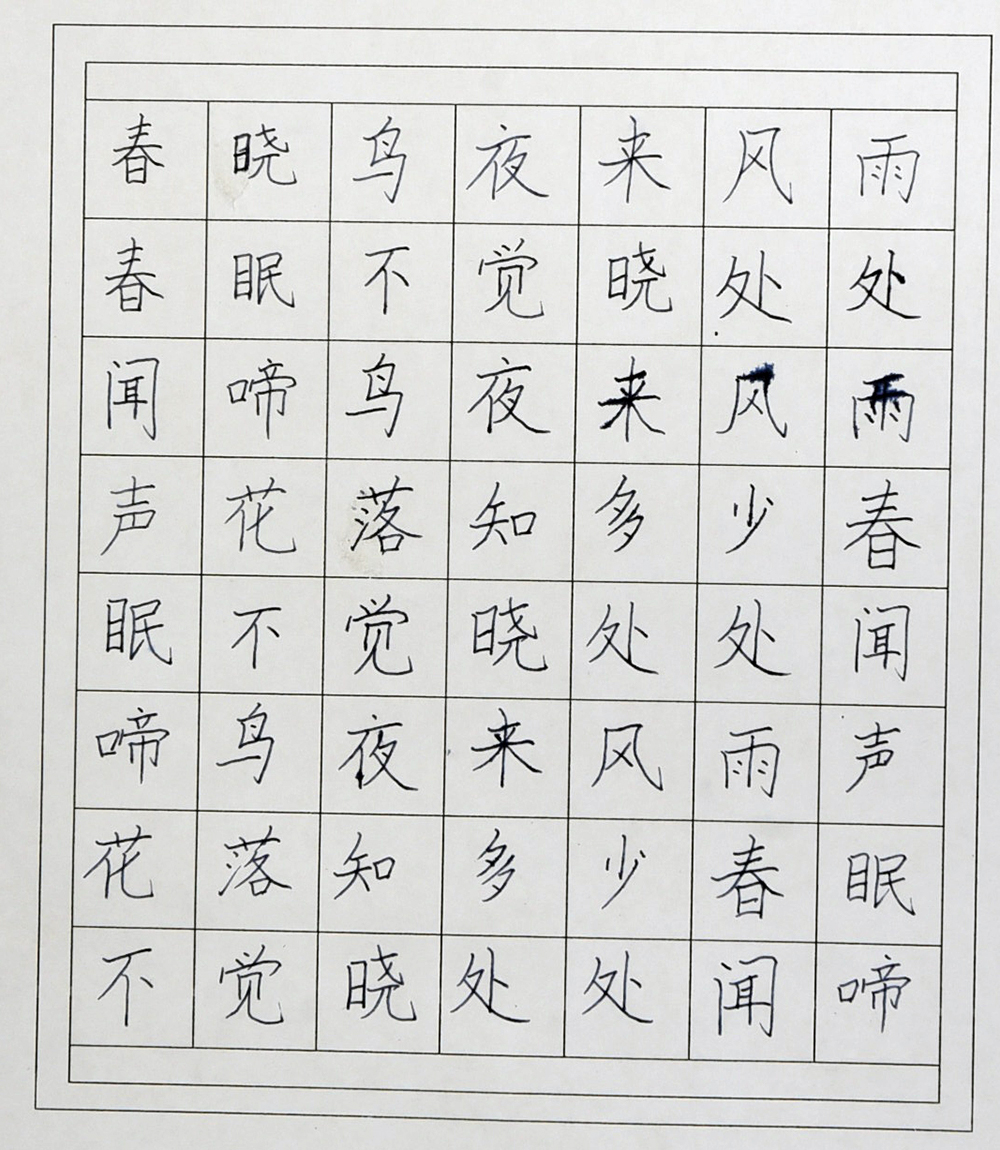 春晓鸟夜来风雨
春眠不觉晓处处
闻啼鸟夜来风雨
声花落知多少春
眠不觉晓处处闻
啼鸟夜来风雨声
花落知多少春眠
不觉晓处处闻啼